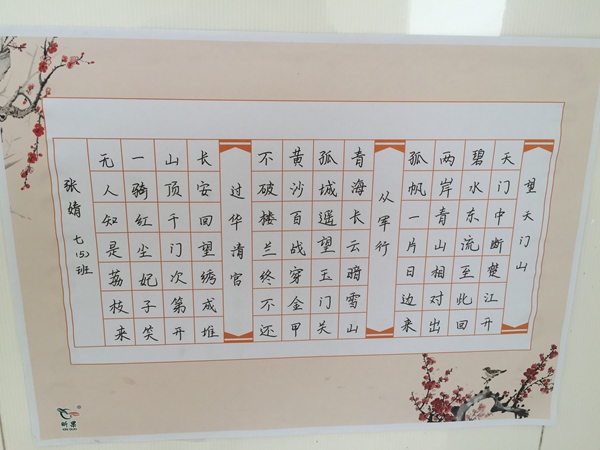 望天门山
天门中断楚江开
碧水东流至此回
两岸青山相对出
孤帆一片日边来
从军行
青海长云暗雪山
孤城遥望玉门关
黄沙百战穿金甲
不破楼兰终不还
过华清宫
长安回望绣成堆
山顶千门次第开
一骑红尘妃子笑
无人知是荔枝来
张婧 七(5)班
昕果